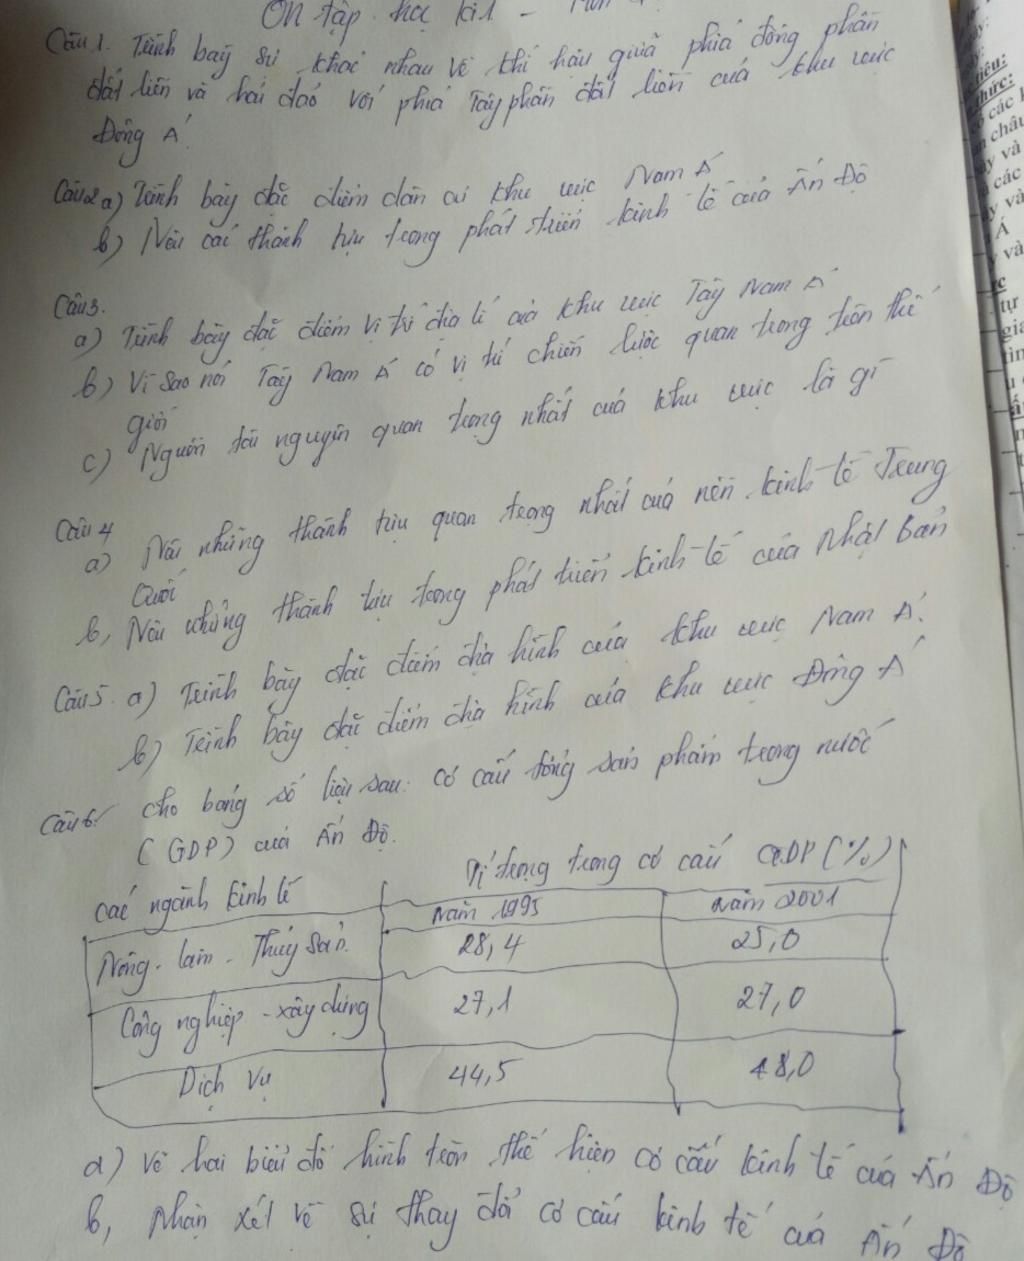 Ôn tập học kì 1 -
Câu 1. Trình bày sự khác nhau về khí hậu giữa phía đông phần
đất liền và hải đảo với phía Tây phần đất liền của khu vực
Đông Á
Câu 2 a) Trình bày đặc điểm dân cư khu vực Nam Á
b) Nêu các thành tựu trong phát triển kinh tế của Ấn Độ
Câu 3.
a) Trình bày đặc điểm vị trí địa lí của khu vực Tây Nam Á
b) Vì sao nói Tây Nam Á có vị trí chiến lược quan trọng trên thế
giới
c) Nguồn tài nguyên quan trọng nhất của khu vực là gì
Câu 4
a) Nêu những thành tựu quan trọng nhất của nền kinh tế Trung
Quốc
b, Nêu những thành tựu trong phát triển kinh tế của Nhật Bản
Câu 5. a) Trình bày đặc điểm địa hình của khu vực Nam Á.
b) Trình bày đặc điểm địa hình của khu vực Đông Á
Câu 6. Cho bảng số liệu sau: cơ cấu tổng sản phẩm trong nước
(GDP) của Ấn Độ.
Các ngành kinh tế Tỉ trọng trong cơ cấu GDP (%)
Năm 1995 Năm 2001
Nông - lâm - Thủy sản 28,4 25,0
Công nghiệp - xây dựng 27,1 27,0
Dịch vụ 44,5 48,0
a) Vẽ hai biểu đồ hình tròn thể hiện cơ cấu kinh tế của Ấn Độ
b, Nhận xét về sự thay đổi cơ cấu kinh tế của Ấn Độ